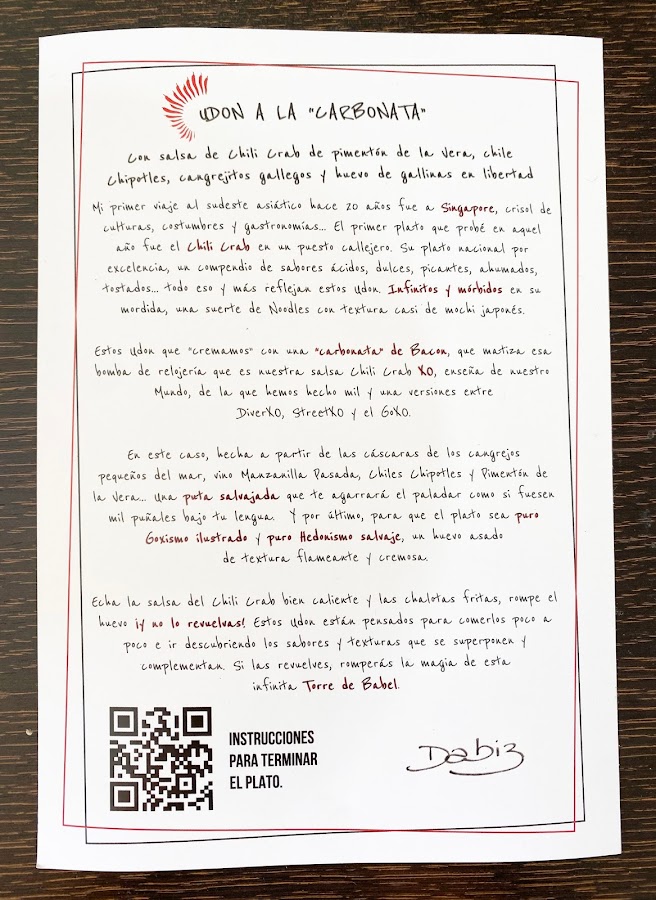 UDON A LA "CARBONATA"
Con salsa de Chili Crab de pimentón de la Vera, chile
Chipotles, cangrejitos gallegos y huevo de gallinas en libertad
Mi primer viaje al sudeste asiático hace 20 años fue a Singapore, crisol de
culturas, costumbres y gastronomías... El primer plato que probé en aquel
año fue el Chili Crab en un puesto callejero. Su plato nacional por
excelencia, un compendio de sabores ácidos, dulces, picantes, ahumados,
tostados... todo eso y más reflejan estos Udon. Infinitos y mórbidos en su
mordida, una suerte de Noodles con textura casi de mochi japonés.
Estos Udon que "cremamos" con una "carbonata" de Bacon, que matiza esa
bomba de relojería que es nuestra salsa Chili Crab XO, enseña de nuestro
Mundo, de la que hemos hecho mil y una versiones entre
DiverXO, StreetXO y el GoXO.
En este caso, hecha a partir de las cáscaras de los cangrejos
pequeños del mar, vino Manzanilla Pasada, Chiles Chipotles y Pimentón de
la Vera... Una puta salvajada que te agarrará el paladar como si fuesen
mil puñales bajo tu lengua. Y por último, para que el plato sea puro
Goxismo ilustrado y puro Hedonismo salvaje, un huevo asado
de textura flameante y cremosa.
Echa la salsa del Chili Crab bien caliente y las chalotas fritas, rompe el
huevo ¡y no lo revuelvas! Estos Udon están pensados para comerlos poco a
poco e ir descubriendo los sabores y texturas que se superponen y
complementan. Si las revuelves, romperás la magia de esta
infinita Torre de Babel.
INSTRUCCIONES
PARA TERMINAR
EL PLATO.
Dabiz